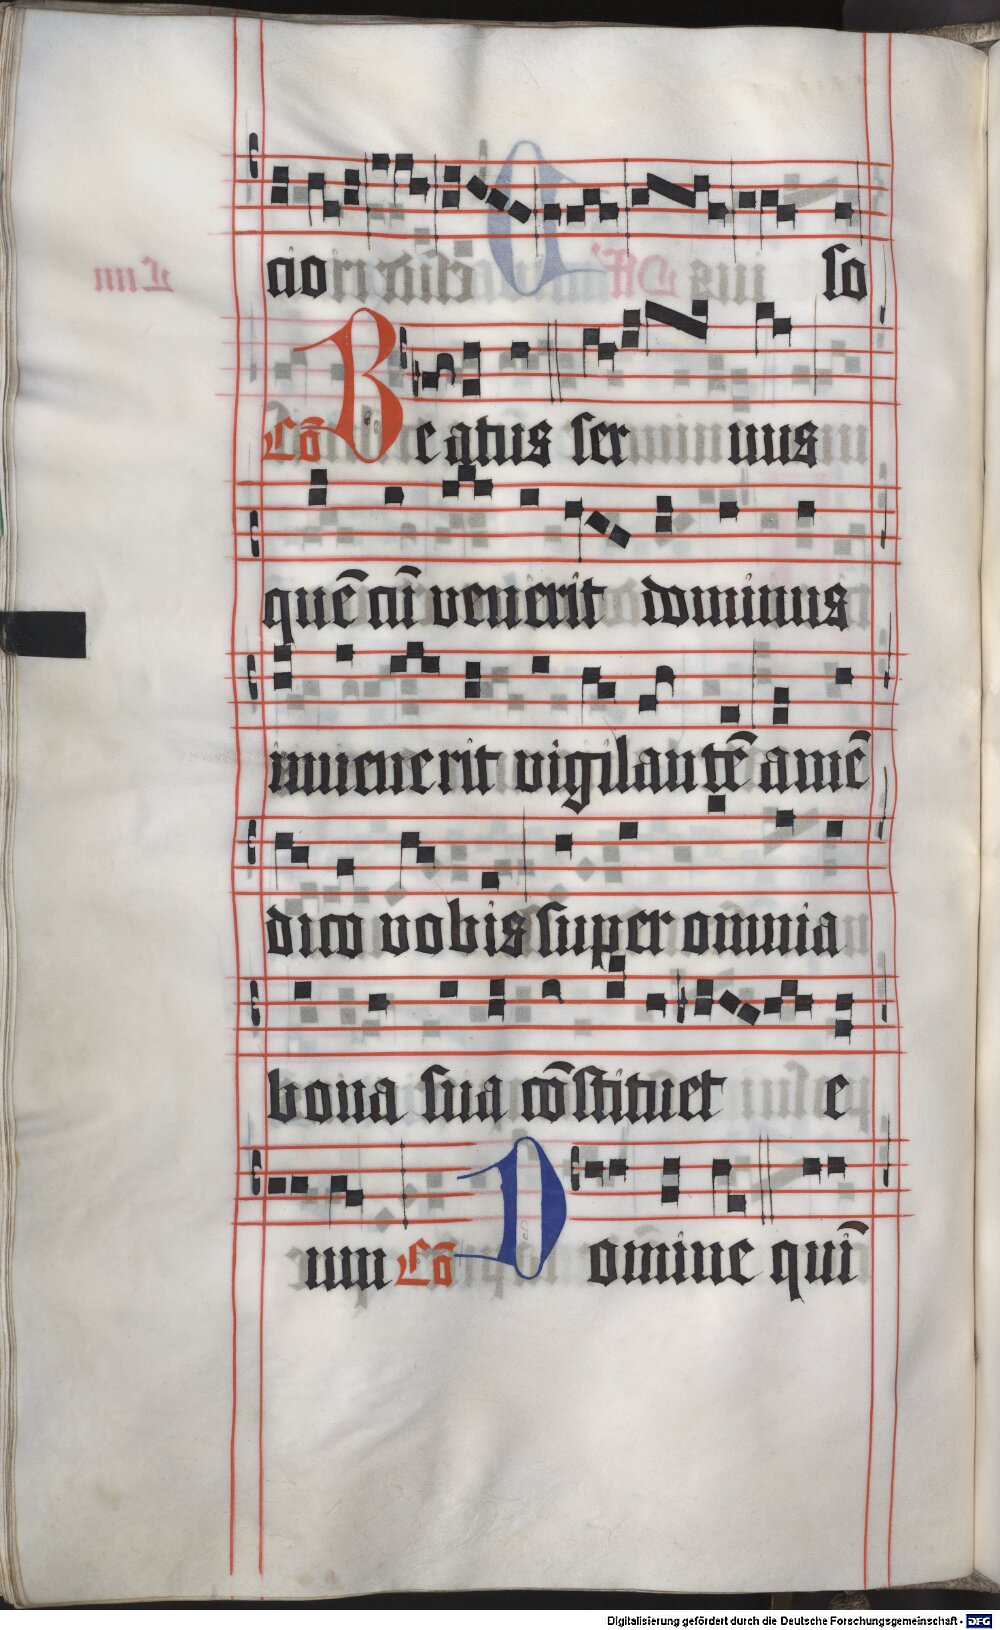 cio so
Cō Beatus ser uus
quē cū venerit dominus
inuenerit vigilantē amē
dico vobis super omnia
bona sua cōstituet e
um Cō Domine quī
Digitalisierung gefördert durch die Deutsche Forschungsgemeinschaft - DFG